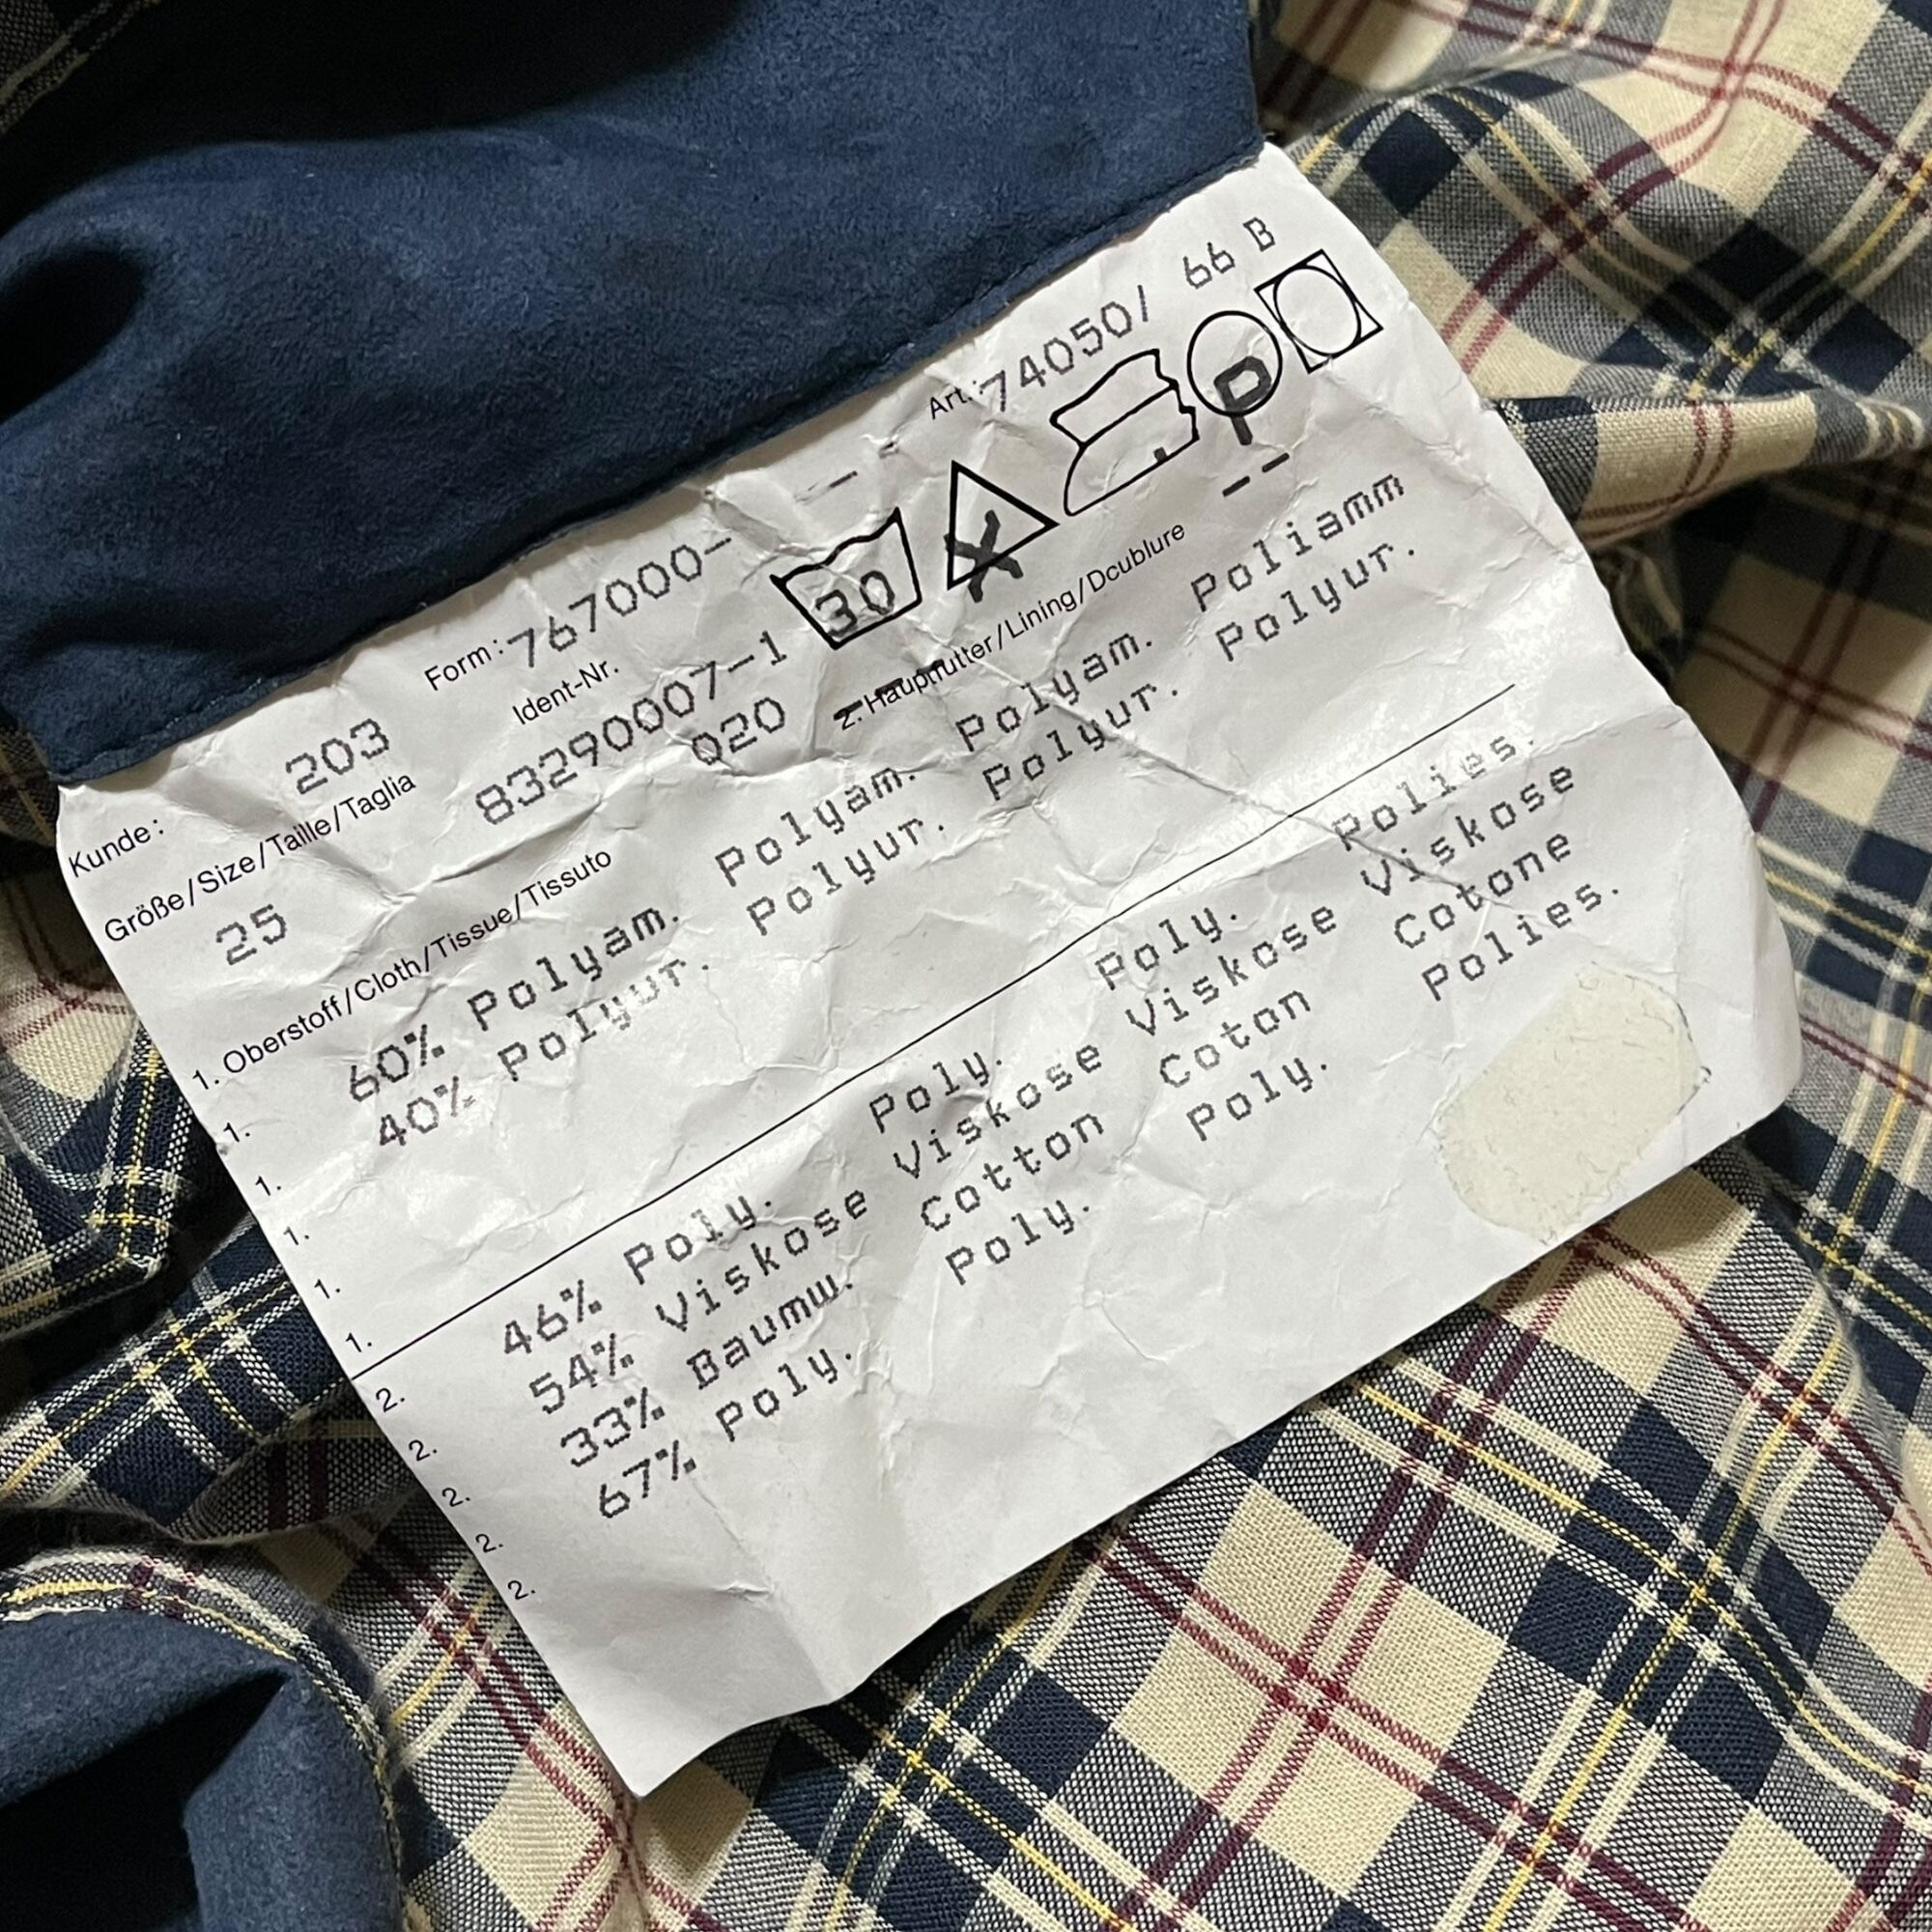 Kunde: 203 Form: 767000- Art.: 74050/ 66 B
Größe/Size/Taille/Taglia Ident-Nr.
25 83290007-1 30 P
020
1. Oberstoff/Cloth/Tissue/Tissuto 2. Hauptfutter/Lining/Dcublure
1. 60% Polyam. Polyam. Polyam. Poliamm
1. 40% Polyur. Polyur. Polyur. Polyur.
1.
1.
1.
2. 46% Poly. Poly. Poly. Polies.
2. 54% Viskose Viskose Viskose Viskose
2. 33% Baumw. Cotton Coton Cotone
2. 67% Poly. Poly. Poly. Polies.
2.